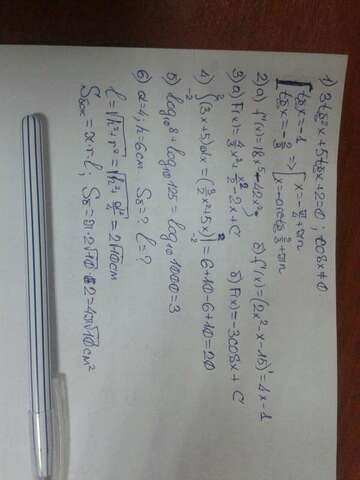 1) 3tg²x+5tgx+2=0 ; cosx≠0
[tgx=-1 ⇒ [x=-π/4+πn
[tgx=-2/3 [x=-arctg 2/3+πn
2) а) f'(x)=18x⁵-42x² б) f'(x)=(2x²-x-15)'=4x-1
3) а) F(x)=4/3x³+x²/2-2x+C б) F(x)=-3cosx+C
4) ∫₋₂²(3x+5)dx=(3/2x²+5x)|₋₂²=6+10-6+10=20
5) log₁₀8+log₁₀125=log₁₀1000=3
6) d=4, h=6см S₈=? l=?
l=√h²+r²=√h²+d²/4=2√10 см
Sбок=π·r·l; Sδ=π·2√10·2=4π√10 см²